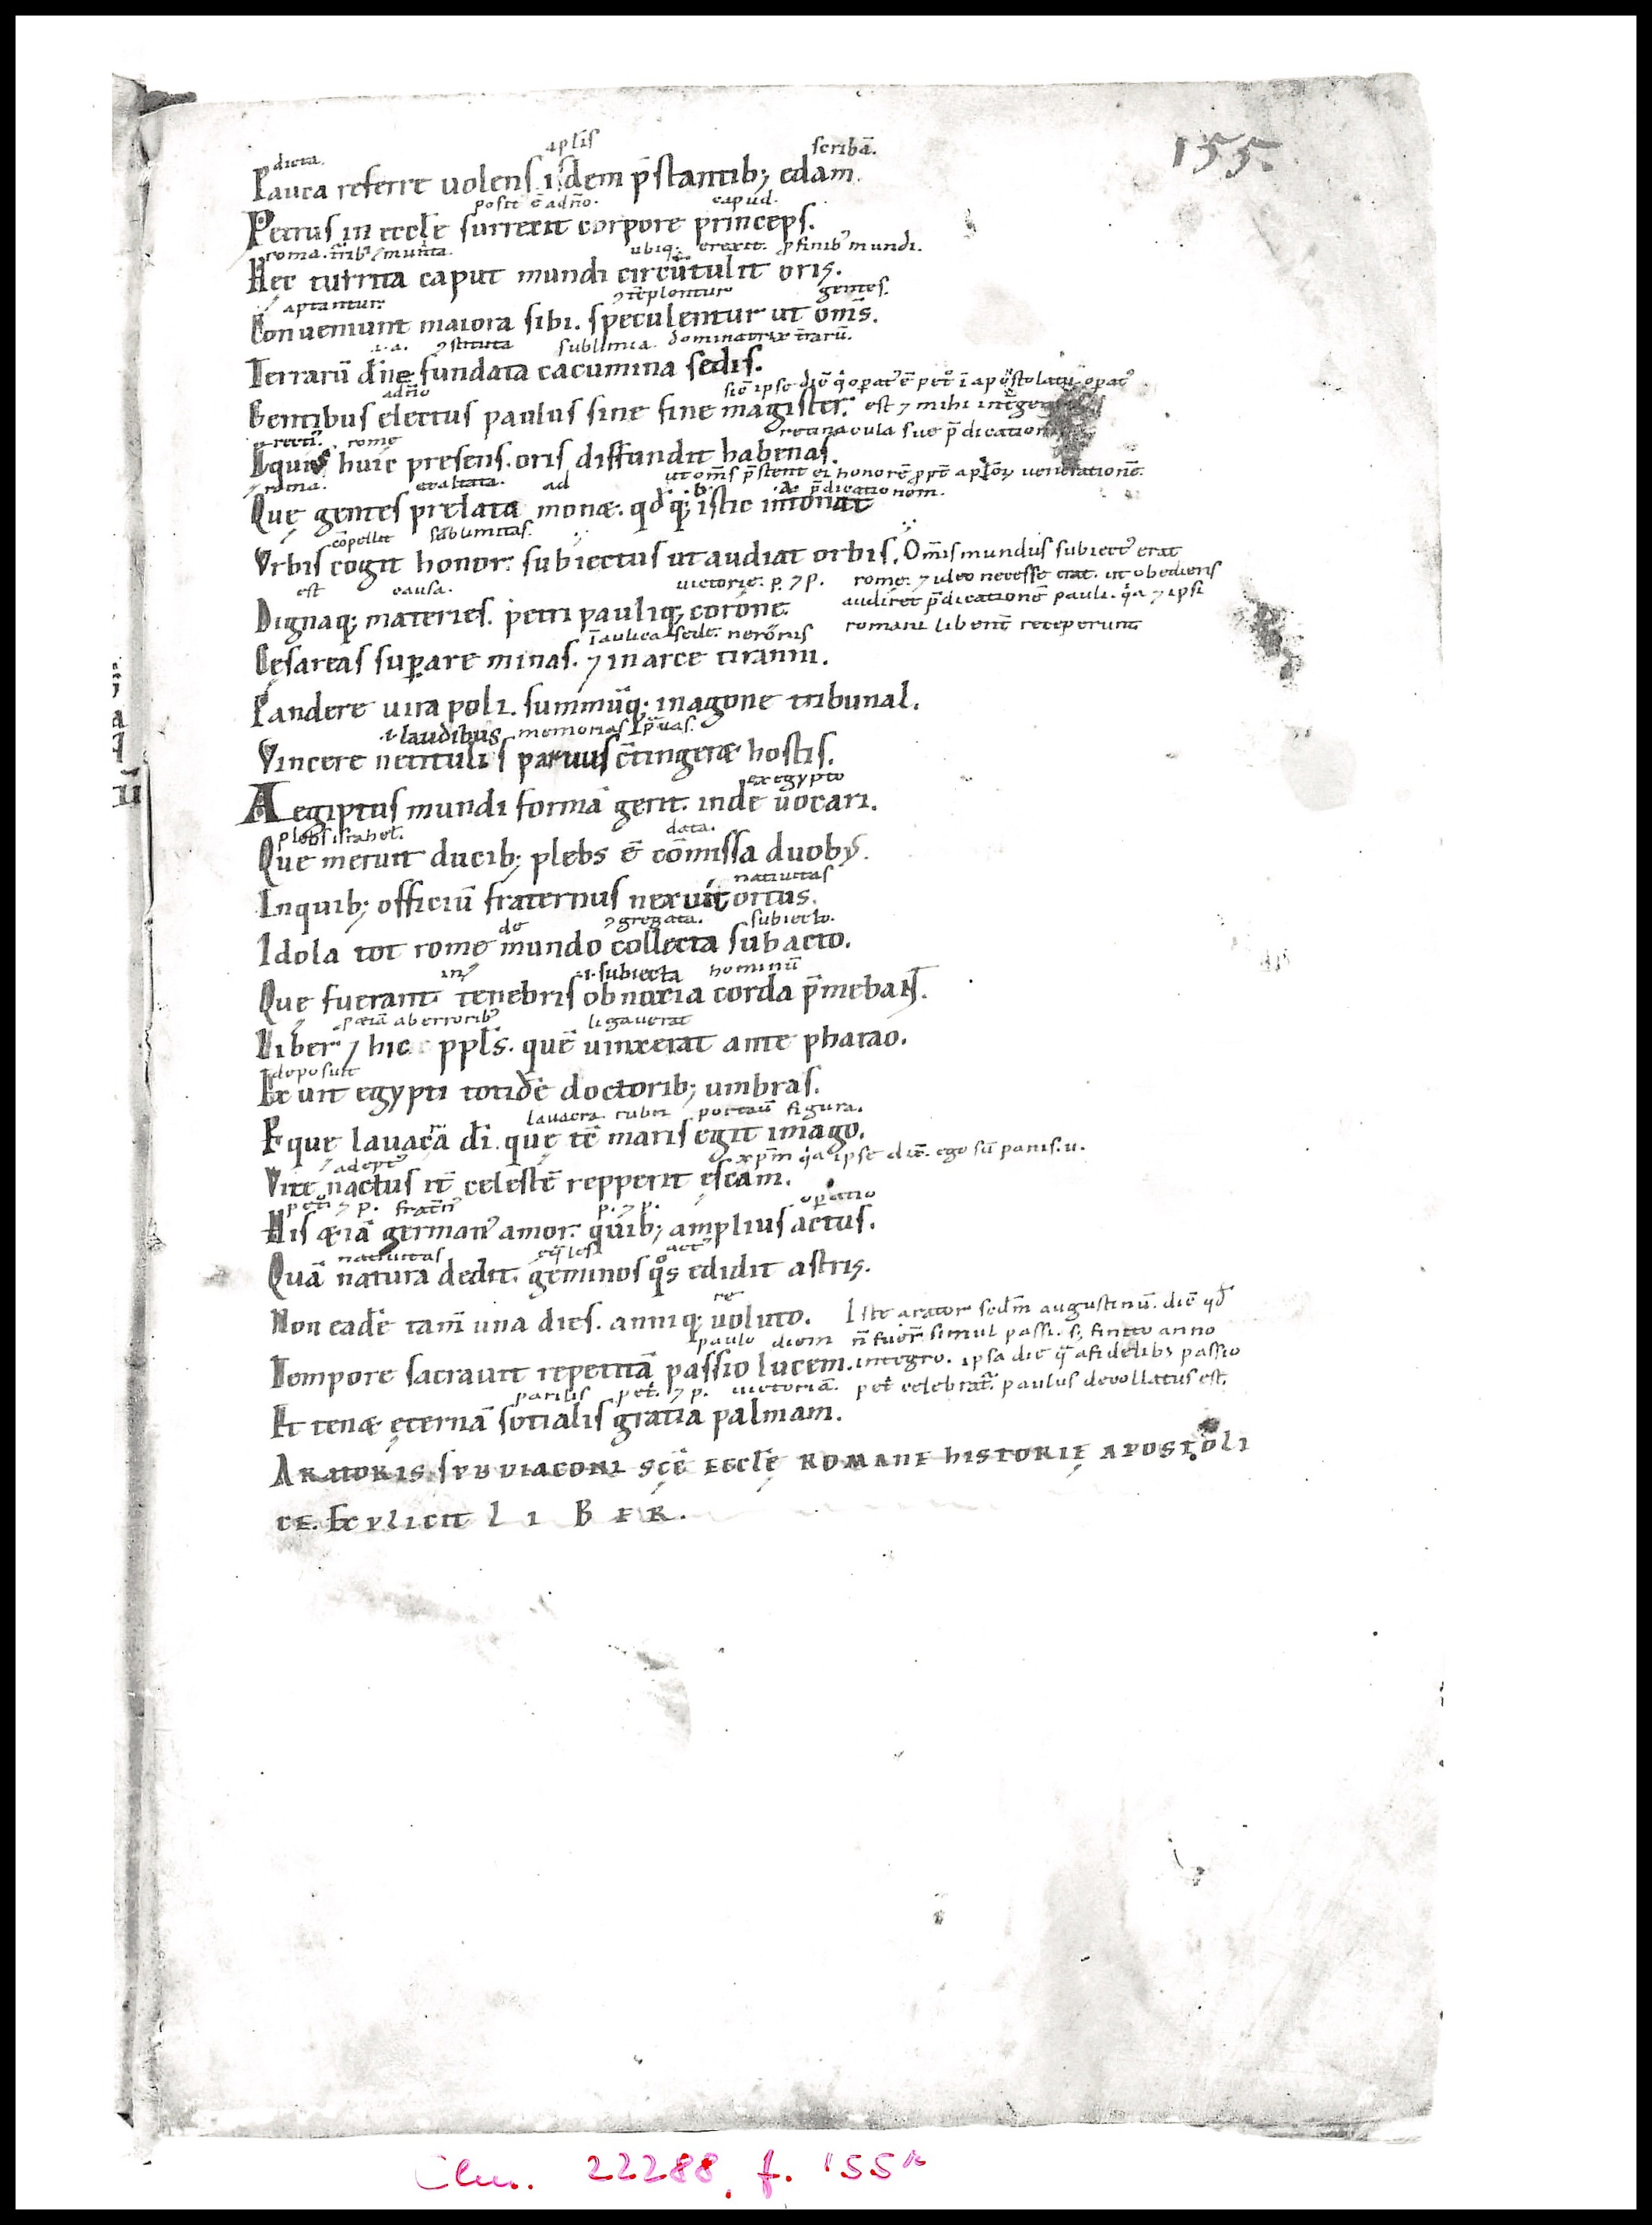 155.
dicta. aplīs scribā.
Pauca referre uolens iſdem p̄ſtantib; edam.
poſtꝫ ē adn̄o. capud.
Petrus in eccl̄e ſurrexit corpore princeps.
roma. munita. ubiq; erexit. ꝑ finibꝰ mundi.
Hec turrita caput mundi circūtulit oris.
aptantur. gentes.
Conueniunt maiora ſibi. ſpeculentur ut om̄s.
.i.a. ꝯſtituta ſublimia. dominatrix t̄rarū.
Terrarū dn̄e fundata cacumina ſedis.
adn̄o ſic̄ ipſe dic̄ q̇ oꝑatꝰ ē petͦ ī apoſtolatu oꝑatꝰ
Gentibus electus paulus ſine fine magiſter. eſt ⁊ mihi int̄
rome retinacula ſue p̄dication
Equis huic preſens. oris diffundit habenas.
roma. exaltata. ad ut om̄s p̄ſtent ei honorē uenerationē.
.b. .a. p̄dicationem.
Quę gentes prelata monæ. qd̄q; iſtic intonat
cōpellit ſublimitas.
Vrbis cogit honor. ſubiectus ut audiat orbis. Om̄is mundus ſubiectꝰ erat
eſt cauſa. uictorie. p. ⁊ p. rome. ⁊ ideo neceſſe erat. ut obediens
Dignaq; materies. petri pauliq; corone audiret p̄dicationē pauli. q̇a ⁊ ipſi
ī aulica ſede. neronis romani libent̄ receperunt
Ceſareas ſuꝑare minas. ⁊ in arce tiranni.
Pandere iura poli. ſummūq; in agone tribunal.
.i. laudibus memorias p̄uas.
Vincere ne tituliſ paruus c̄tingeræ hoſtis.
ex egypto
Aegiptus mundi formā gerit. inde uocari.
plebs iſrahel. data.
Que meruit ducib; plebs ē cōmiſſa duobꝰ.
natiuitas
Inquib; officiū fraternus nexuit ortus.
de ꝯgregata. ſubiecto.
Idola tot rome mundo collecta ſubacto.
in .i. ſubiecta hominū
Que fuerant tenebris obnoxia corda p̄mebant.
æciā ab erroribꝰ ligauerat
Liber ⁊ hic ppl̄s. quē uinxerat ante pharao.
depoſuit
Exuit egypti totidē doctorib; umbras.
lauacra rubri portauit figura.
Eque lauac̄a dī. quę tc̄ maris egit imago.
adeptꝰ xp̄m q̇a ipſe dic̄. ego ſū panis. u.
Vite nactus it̄ celeſtē repperit eſcam.
petͥ ⁊ p. frat̄nꝰ p. ⁊ p. oꝑatio
His æciā germanꝰ amor. quib; amplius actus.
natiuitas
Quā natura dedit. geminos qͦs edidit aſtris.
re
Non eadē tam̄ una dies. anniq; uoluto. Iſte arator ſedm̄ auguſtinū. dic̄ qd̄
paulo diem n̄ fuer̄ ſimul paſſi. ſ; finito anno
Tempore ſacrauit repetitā paſſio lucem. integro. ipſa die q̄ a fidelibꝫ paſſio
parilis petͥ. ⁊ p. uictoriā. petͥ celebrat̄. paulus decollatus eſt.
Et tenæ eternā ſotialis gratia palmam.
ARATORIS. SUBDIACONI SCE ECCLE ROMANE HISTORIĘ APOSTOLI
CE. Explicit L I B E R.
Clm. 22288, f. 155r